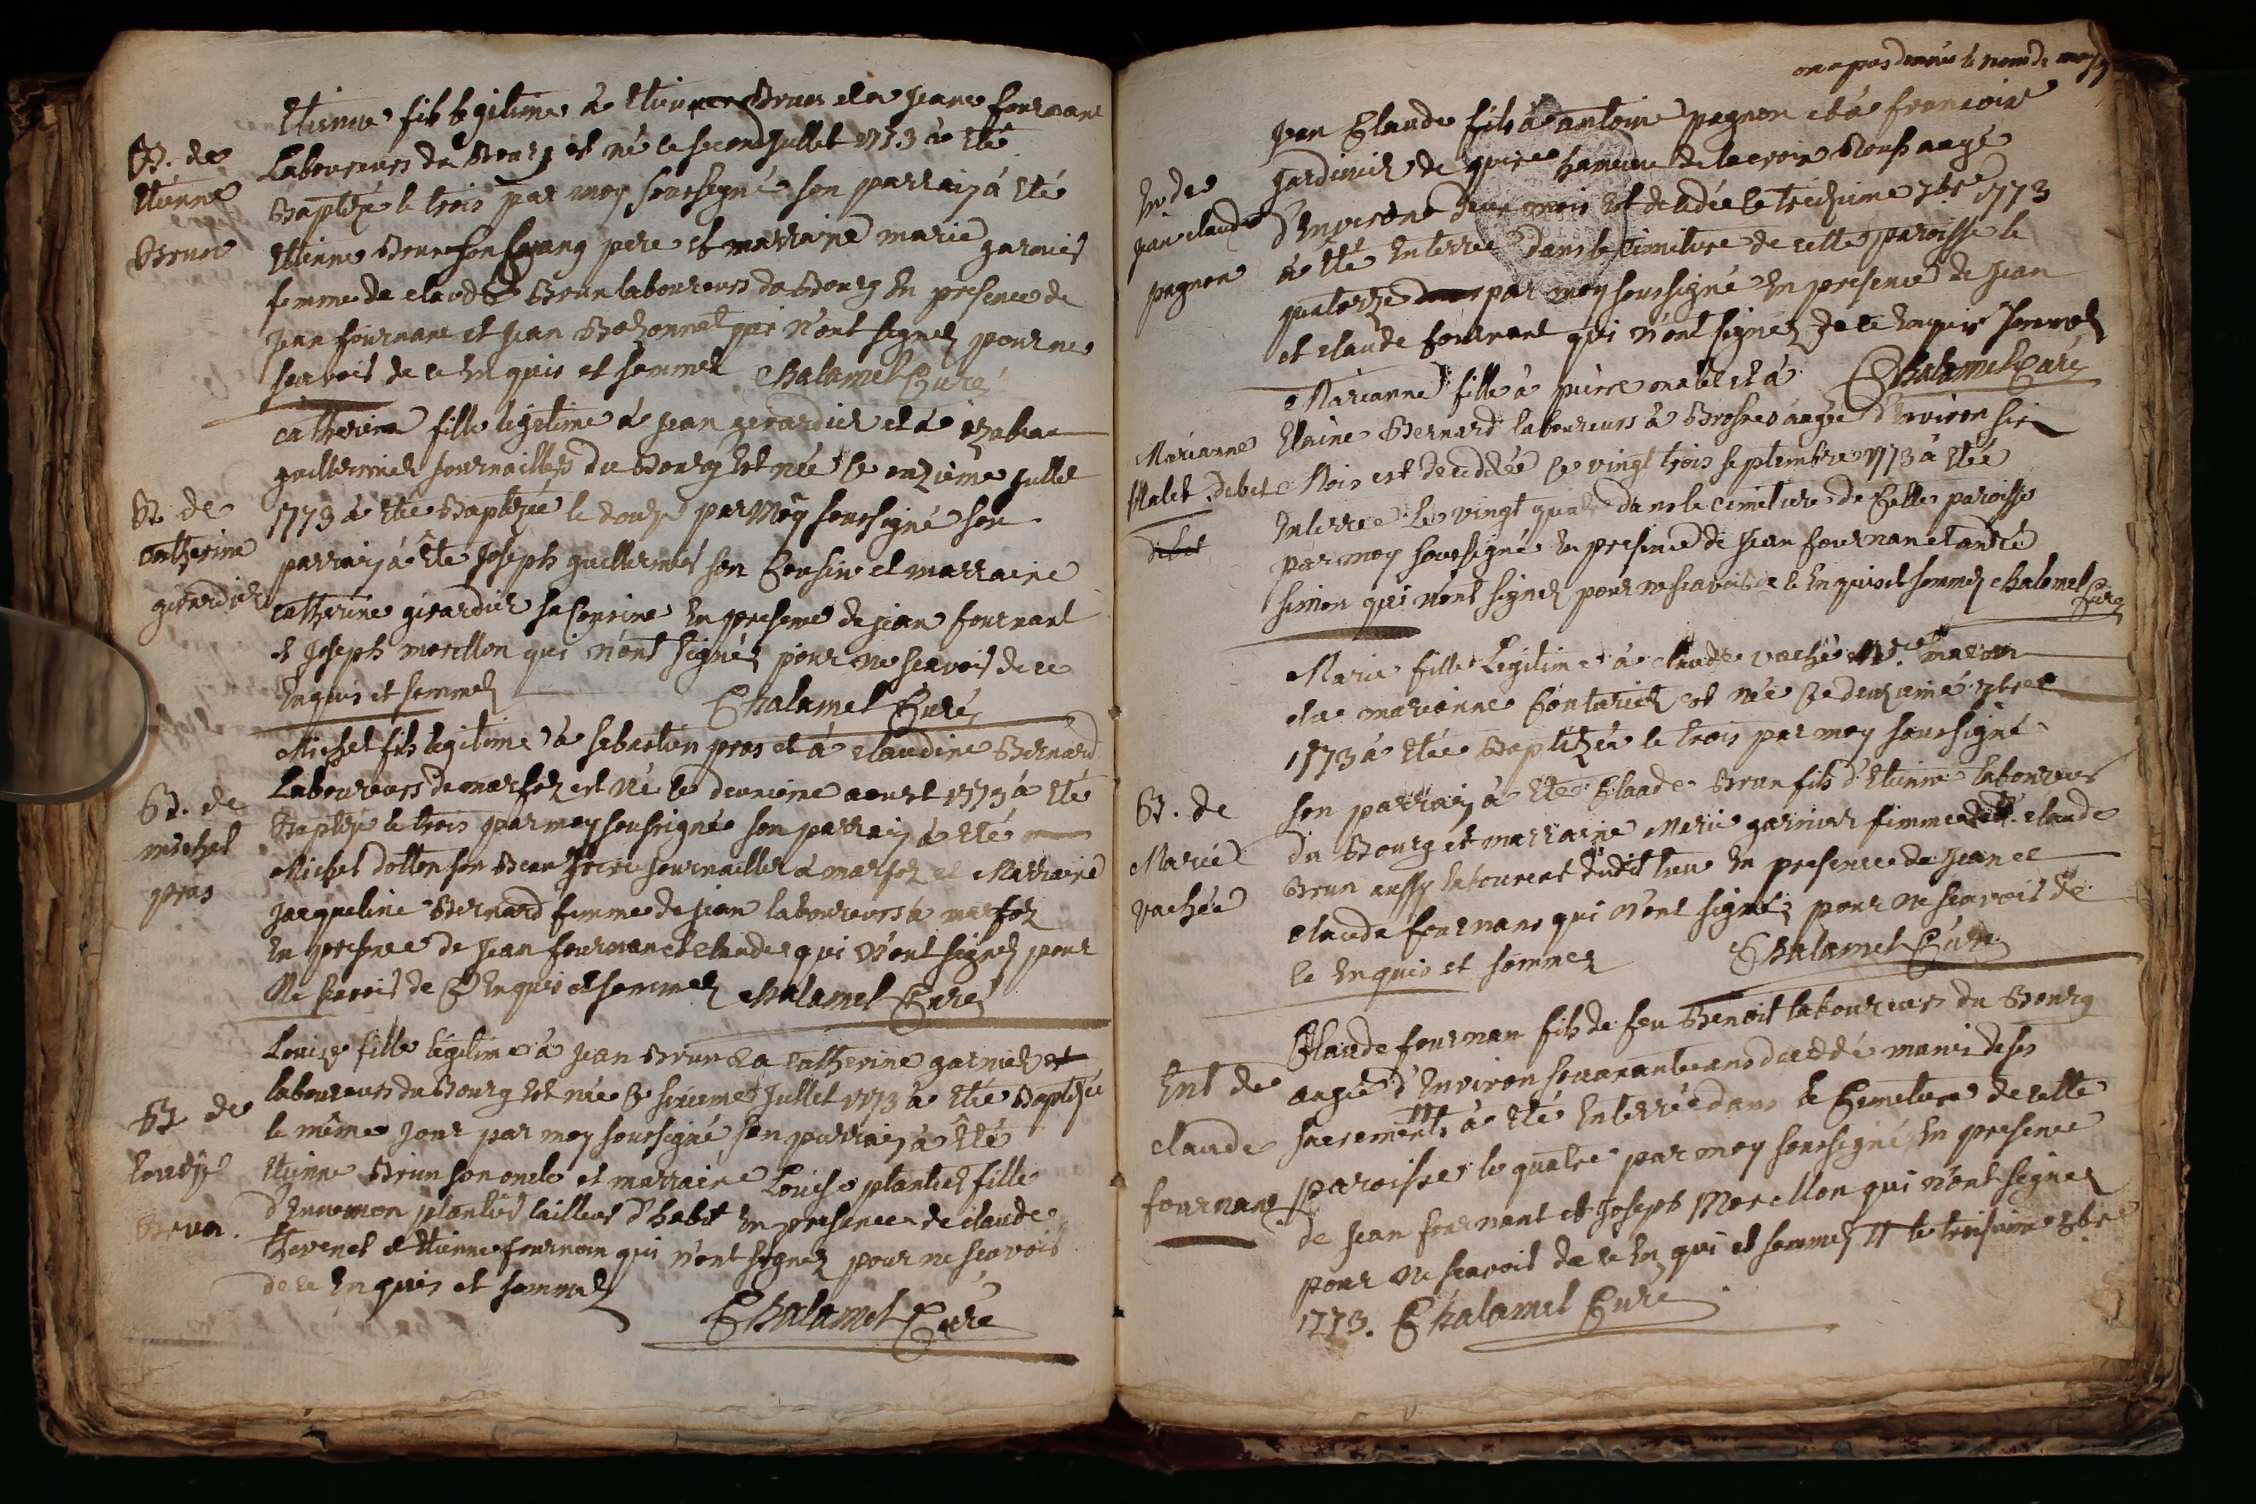 B. de
Etienne
Brun
Etienne fils legitime à Etienne Brun et a jeane fournane
Laboureurs du Bourg et né le second Jullet 1773 à eté
Baptizé le trois par moy soussigné son parrain à eté
Etienne Brun son Grang pere et marraine marie garnier
femme de claude Brun laboureurs du Bourg en presence de
jean fournane et jean qui n'ont signez pour ne
scavoir de ce enquis et sommez Chalamel Curé
B. de
catherine
girardier
catherine fille legitime à jean girardier et à izabeau
guillermier journaillers du Bourg est née le onzieme jullet
1773 à eté Baptizée le douze par Moy soussigné son
parrain à ete joseph guillermier son Cousin et marraine
catherine girardier sa Cousine en presence de jean fournant
et joseph morellon qui n'ont signéz pour ne scavoir de ce
enquis et sommez Chalamel Curé
B. de
michel
pras
Michel fils legitime à sebastien pras et à claudine Bernard
Laboureurs de marfoz est né le deuxieme aoust 1773 à eté
Baptizé le trois par moy soussigné son parrain à eté
Michel dotton son Beau frere journaillier à marfoz et Marraine
jacqueline Bernard femme de jean laboureurs à marfoz
en presence de jean fournan et claude qui n'ont signez pour
Ne scavoir de Ce enquis et sommez Chalamel Curé
B. de
Brun.
Louise fille legitime à jean Brun et a catherine garnier
laboureurs du Bourg est née le Jullet 1773 à etée Baptizée
le même jour par moy soussigné son parrain à eté
Etienne Brun son oncle et marraine Louise plantier fille
d'ennemon plantier tailleur d'habit en presence de claude
thevenet et Etienne fournan qui n'ont signez pour ne scavoir
de ce enquis et sommez
Chalamel Curé
on a pas donnée le nom de
En. de
jean claude
pagnon
jean Claude fils à antoine pagnon et à francoise
jardinier de hameau de lacroix aagé
d'environt deux mois est decedée le treizieme 7bre 1773
à eté enterrée dans le cimetiere de cette paroisse le
quatorze par moy soussigné en presence de jean
et claude fournant qui n'ont signéz de ce enquis sommez
Chalamel Curé
Marianne
Malet debet
debet
Marianne fille à pierre malet et à
Claine Bernard laboureurs à Brosses aagée d'environ six
Mois est decedée le vingt trois septembre 1773 à etée
enterrée le vingt quatre dans le cimetiere de Cette paroisse
par moy soussigné en presence de jean fournan et andré
simon qui n'ont signez pour ne scavoir de ce enquis et sommez Chalamel
Curé
B. de
Marie
vachée
Marie fille Legitime à claude vaché
et a marianne Couturier est née le deuxieme 7bre
1773 à etée Baptizée le trois par moy soussigné
son parrain à ete Claude Brun fils d'Etienne laboureur
du Bourg et marraine Marie garnier femme de claude
Brun aussy laboureur dudit lieu en presence de jean et
claude fournans qui n'ont signéz pour ne scavoir de
Ce enquis et sommez Chalamel Curé
Ent de
claude
fournan
Claude fournan fils de feu Benoit laboureurs du Bourg
aagée d'environ soixante ans decedé muni de ses
sacrements à eté enterrée dans le Cemetiere de cette
paroisse le quatre par moy soussigné en presence
de jean fournant et joseph Morellon qui n'ont signez
pour ne scavoir de ce enquis et sommez le troisieme
1773. Chalamel Curé